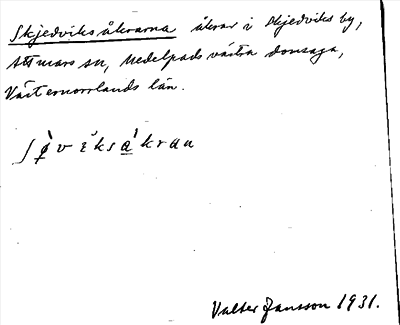 Skjedviksåkrarna åkrar i Skjedviks by,
Attmars sn, Medelpads västra domsaga,
Västernorrlands län.
ʃø̀vɛ́ksa̠̍kran
Valter Jansson 1931.